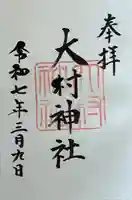 奉拝
大村神社
令和七年三月九日